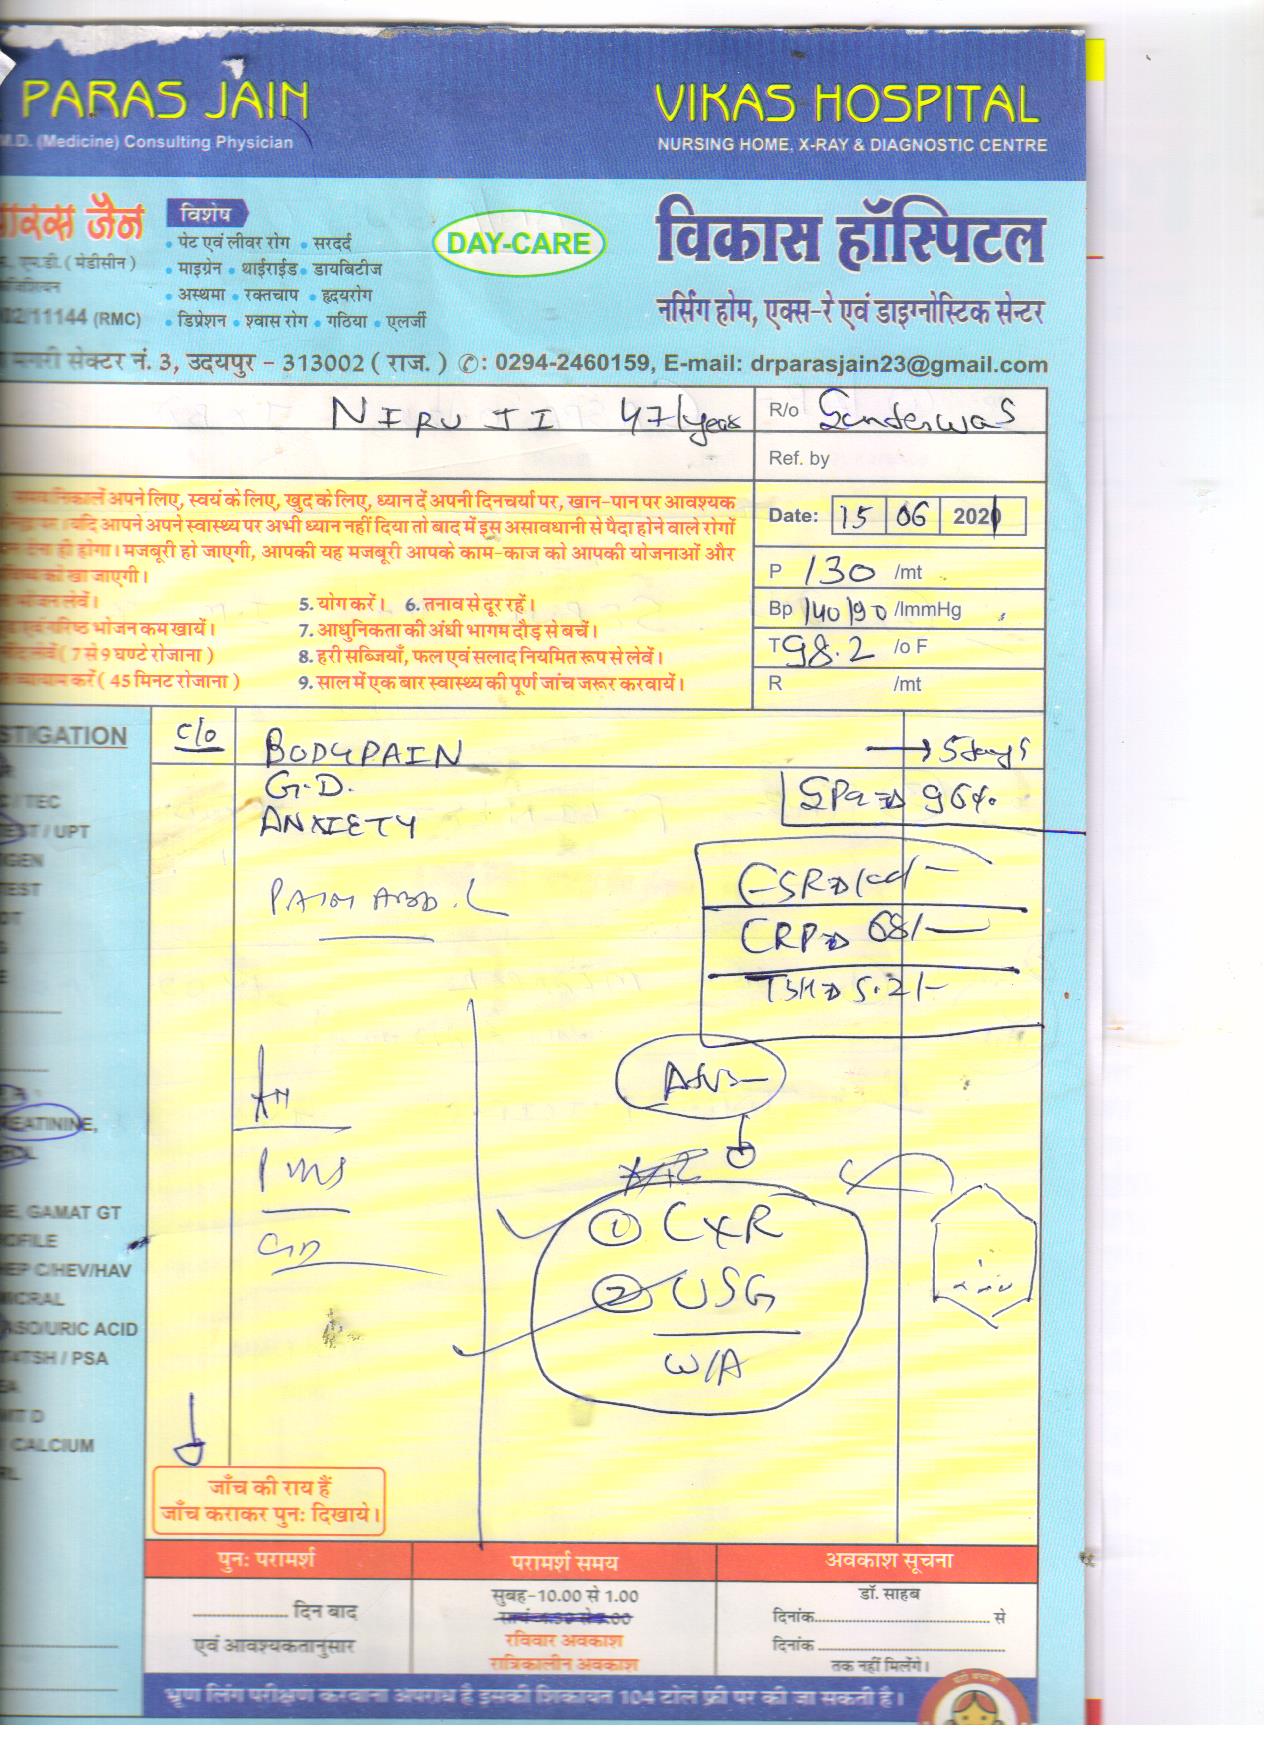 PARAS JAIN
M.D. (Medicine) Consulting Physician
VIKAS HOSPITAL
NURSING HOME, X-RAY & DIAGNOSTIC CENTRE
पारस जैन
एम.डी. ( मेडीसीन )
11144 (RMC)
विशेष
• पेट एवं लीवर रोग • सरदर्द
• माइग्रेन • थाईराईड • डायबिटीज
• अस्थमा • रक्तचाप • हृदयरोग
• डिप्रेशन • श्वास रोग • गठिया • एलर्जी
DAY-CARE
विकास हॉस्पिटल
नर्सिंग होम, एक्स-रे एवं डाइग्नोस्टिक सेन्टर
मगरी सेक्टर नं. 3, उदयपुर - 313002 ( राज. ) ✆: 0294-2460159, E-mail: drparasjain23@gmail.com
NIRU JI 47/year
R/o Sunderwas
Ref. by
समय निकालें अपने लिए, स्वयं के लिए, खुद के लिए, ध्यान दें अपनी दिनचर्या पर, खान-पान पर आवश्यक
यदि आपने अपने स्वास्थ्य पर अभी ध्यान नहीं दिया तो बाद में इस असावधानी से पैदा होने वाले रोगों
ही होगा। मजबूरी हो जाएगी, आपकी यह मजबूरी आपके काम-काज को आपकी योजनाओं और
को खा जाएगी।
भोजन लेवें।
एवं गरिष्ठ भोजन कम खायें।
लेवें ( 7 से 9 घण्टे रोजाना )
व्यायाम करें ( 45 मिनट रोजाना )
5. योग करें। 6. तनाव से दूर रहें।
7. आधुनिकता की अंधी भागम दौड़ से बचें।
8. हरी सब्जियाँ, फल एवं सलाद नियमित रूप से लेवें।
9. साल में एक बार स्वास्थ्य की पूर्ण जांच जरूर करवायें।
Date: 15 06 2021
P 130 /mt
Bp 140/90 /ImmHg
T 98.2 /o F
R /mt
STIGATION
/ TEC
EST / UPT
GEN
TEST
OT
REATININE,
E, GAMAT GT
OFILE
HEP C/HEV/HAV
MICRAL
ASO/URIC ACID
T4/TSH / PSA
VIT D
CALCIUM
C/O
BODYPAIN → 5 days
G.D.
ANXIETY
PAIN ABD.
96%
ESR
CRP → 68/-
TSH → 5.2/-
① CXR
② USG
W/A
जाँच की राय हैं
जाँच कराकर पुन: दिखाये।
पुन: परामर्श
.................... दिन बाद
एवं आवश्यकतानुसार
परामर्श समय
सुबह-10.00 से 1.00
रविवार अवकाश
रात्रिकालीन अवकाश
अवकाश सूचना
डॉ. साहब
दिनांक........................................ से
दिनांक ........................................
तक नहीं मिलेंगे।
भ्रूण लिंग परीक्षण करवाना अपराध है इसकी शिकायत 104 टोल फ्री पर की जा सकती है।